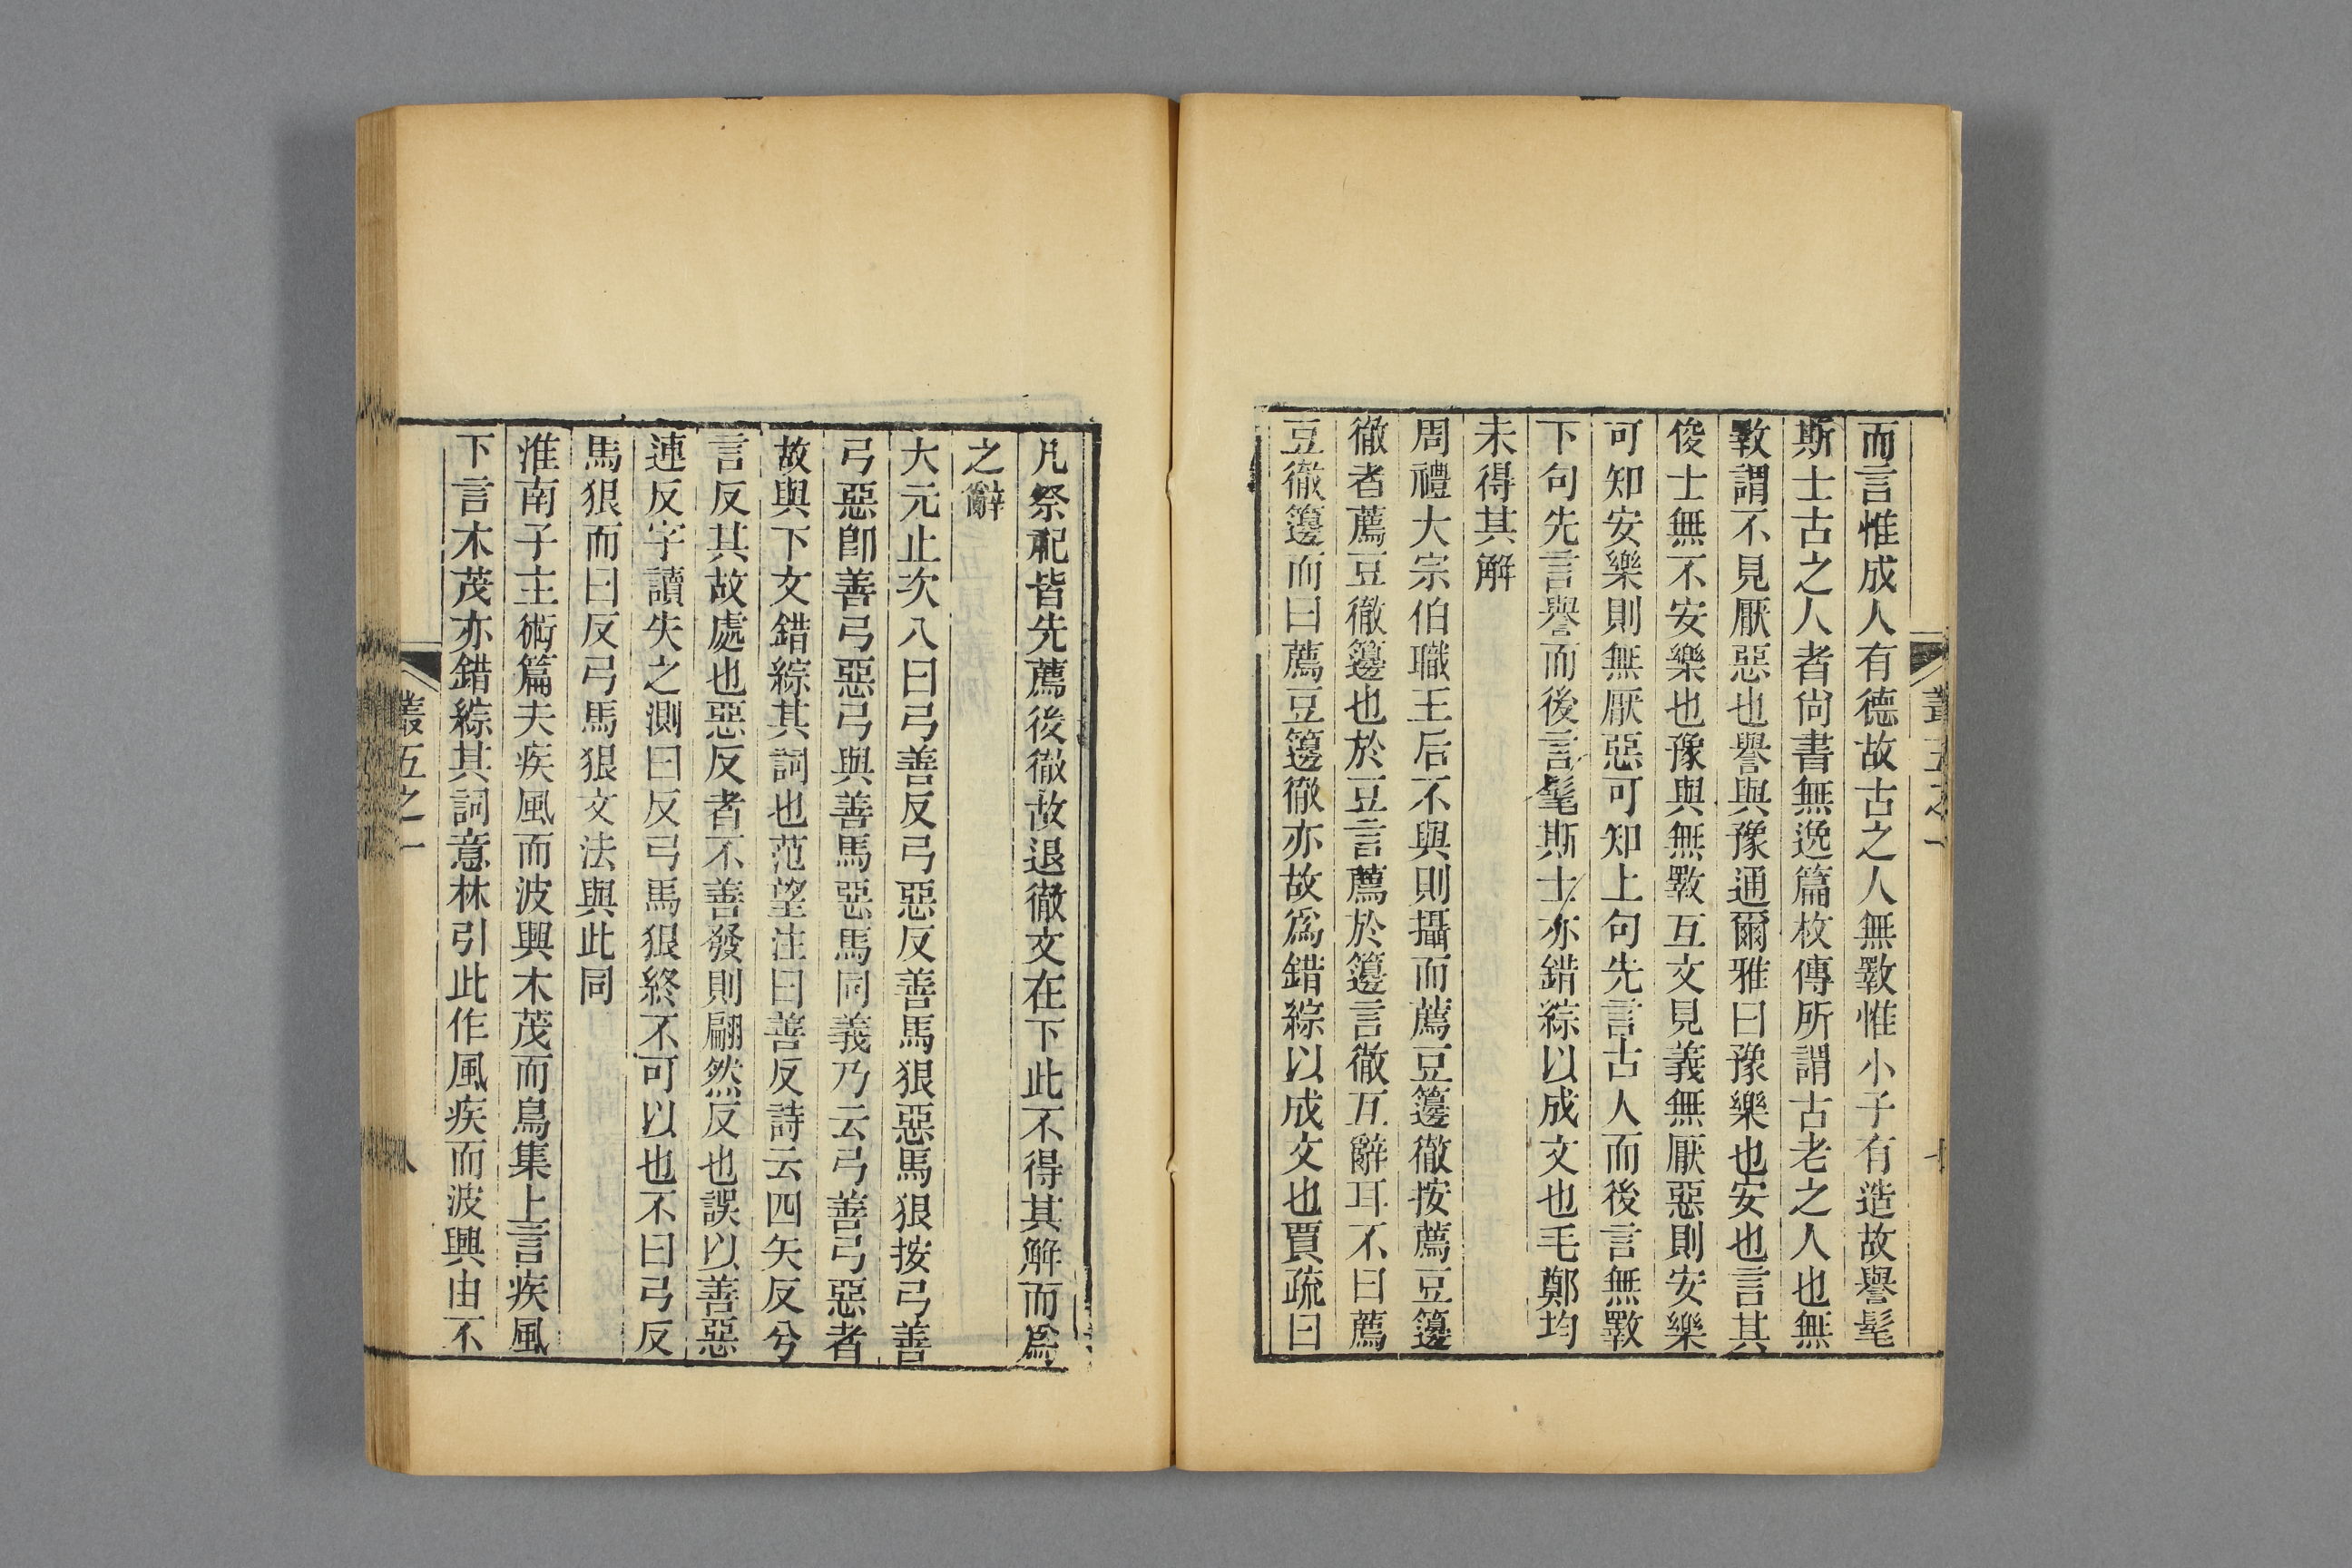 而言惟成人有德故古之人無斁惟小子有造故譽髦
斯士古之人者尙書無逸篇枚傳所謂古老之人也無
斁謂不見厭惡也譽與豫通爾雅曰豫樂也安也言其
俊士無不安樂也豫與無斁互文見義無厭惡則安樂
可知安樂則無厭惡可知上句先言古人而後言無斁
下句先言譽而後言髦斯士亦錯綜以成文也毛鄭均
未得其解
周禮大宗伯職王后不與則攝而薦豆籩徹按薦豆籩
徹者薦豆徹籩也於豆言薦於籩言徹互辭耳不曰薦
豆徹籩而曰薦豆籩徹亦故爲錯綜以成文也賈疏曰
凡祭祀皆先薦後徹故退徹文在下此不得其解而爲
之辭
大元止次八曰弓善反弓惡反善馬狠惡馬狠按弓善
弓惡卽善弓惡弓與善馬惡馬同義乃云弓善弓惡者
故與下文錯綜其詞也范望注曰善反詩云四矢反兮
言反其故處也惡反者不善發則翩然反也誤以善惡
連反字讀失之測曰反弓馬狠終不可以也不曰弓反
馬狠而曰反弓馬狠文法與此同
淮南子主術篇夫疾風而波興木茂而鳥集上言疾風
下言木茂亦錯綜其詞意林引此作風疾而波興由不
叢五之一
八